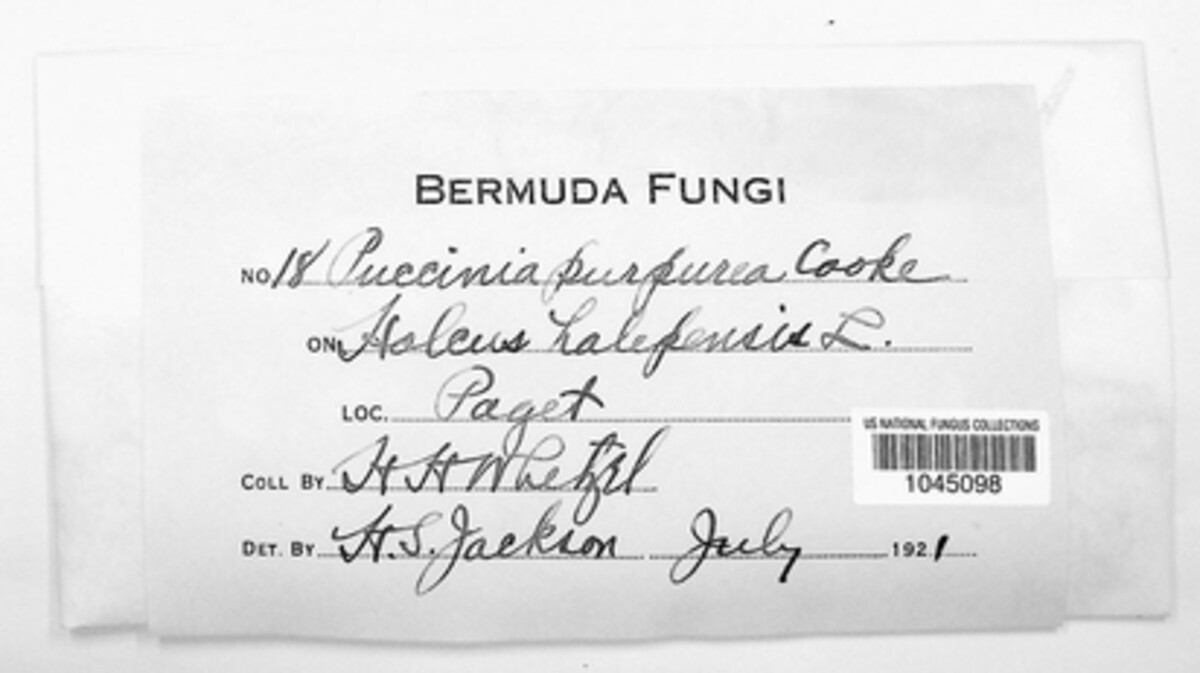 BERMUDA FUNGI
NO. 18 Puccinia purpurea Cooke
ON Holcus halepensis L.
LOC. Paget
US NATIONAL FUNGUS COLLECTIONS
1045098
COLL BY H H Whetzel
DET. BY H.S. Jackson July 1921